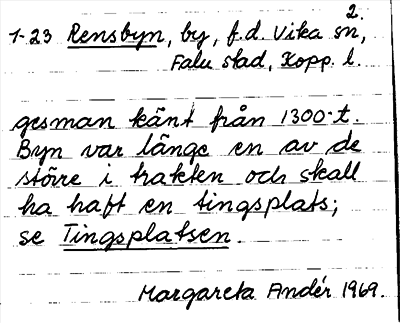 2.
1-23 Rensbyn, by, f.d. Vika sn,
Falu stad, Kopp. l.
gesman känt från 1300-t.
Byn var länge en av de
större i trakten och skall
ha haft en tingsplats;
se Tingsplatsen.
Margareta Andér 1969.